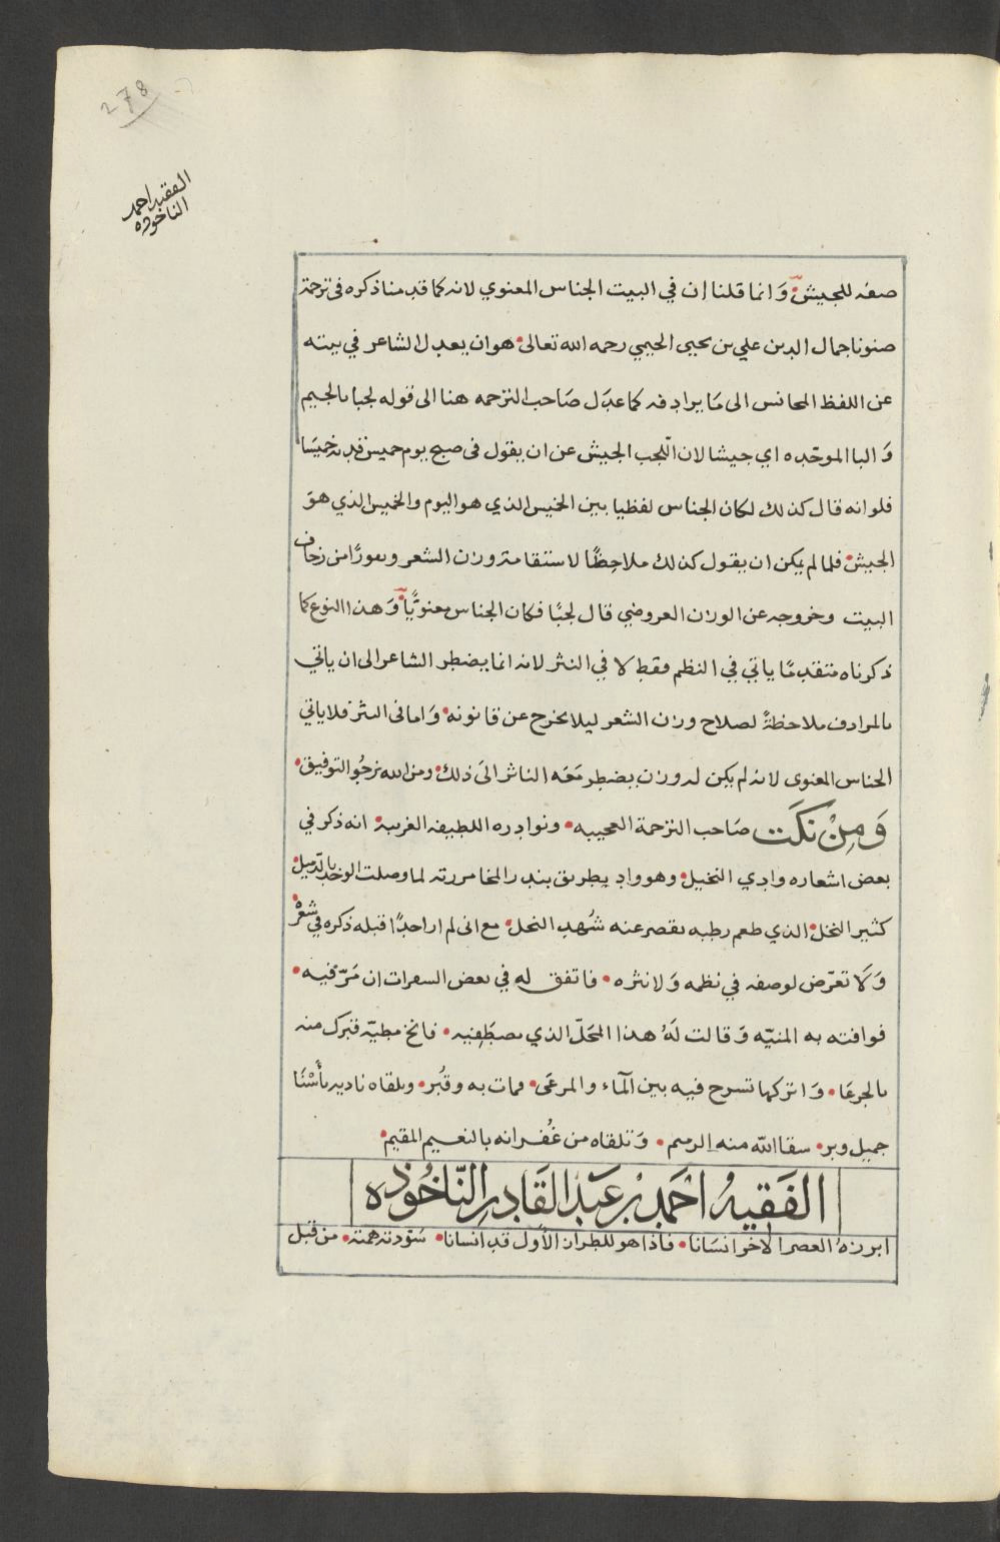 278
الفقيه احمد
الناخوذه
صفه للجيش وَانما قلنا إن في البيت الجناس المعنوي لانه كما قدمنا ذكره فى ترجمة
صنونا جمال الدين علي بن يحيى الحيمي رحمه الله تعالى هو ان يعدل الشاعر في بيته
عن اللفظ المجانس الى مَا يرادفه كما عدَل صَاحب الترجمه هنا الى قوله لجبا بالجيم
وَالبا الموحّده اي جيشا لان اللّجب الجيش عن ان يقول فى صبح يوم خميس قدته خميسَا
فلو انه قال كذلك لكان الجناس لفظيا بين الخميس الذي هو اليوم والخميس الذي هوَ
الجيش فلما لم يكن ان يقول كذلك ملاحِظًا لاستقامة وزن الشعر ونفورًا من زحاف
البيت وخروجه عن الوزن العروضي قال لجبًا فكان الجناس معنويًّا وَهذا النوع كما
ذكرناه متقدمًا ياتي في النظم فقط لا في النثر لانه انما يضطر الشاعر الى ان ياتي
بالمرادف ملاحظةً لصلاح وزن الشعر ليلا يخرج عن قانونه وَاما فى النثر فلا ياتي
الجناس المعنوى لانه لم يكن له وزن يضطر مَعَه الناثر الىَ ذلك ومن الله نرجُو التوفيق
وَمِنْ نكَت صَاحب الترجمة العجيبه ونوادره اللطيفه الغريبه انه ذكر في
بعض اشعاره وادي النخيل وهو وادٍ بطريق بندر المخا مررته لما وصلت الوخد بالذّميل
كثير النخل الذي طعم رطبه يقصر عنه شُهد النحل مع انى لم ار احدًا قبله ذكره في شعره
وَلَا تعرّض لوصفه في نظمه وَلا نثره فاتفق له في بعض السفرات ان مَرّ فيه
فوافته به المنيّه وَقالت لَهُ هذا المَحَلّ الذي تصطَفيه فانخ مطيّه قبرك منه
بالجرعَا وَاتركها تسرح فيه بين المآء والمرعَى فمات به وقُبر وتلقاه ناديه بأُسْنًا
جميل وبر سقا الله منه الرسم وَتلقاه من غُفرانه بالنعيم المقيم
الفَقِيهُ احَمَد بْن عَبْد القَادِرِ النّاخُوذَه
ابرزهُ العصر الاخر انسَانا فاذا هو للطراز الأول قد انسانا سَوّدته همته من قبل